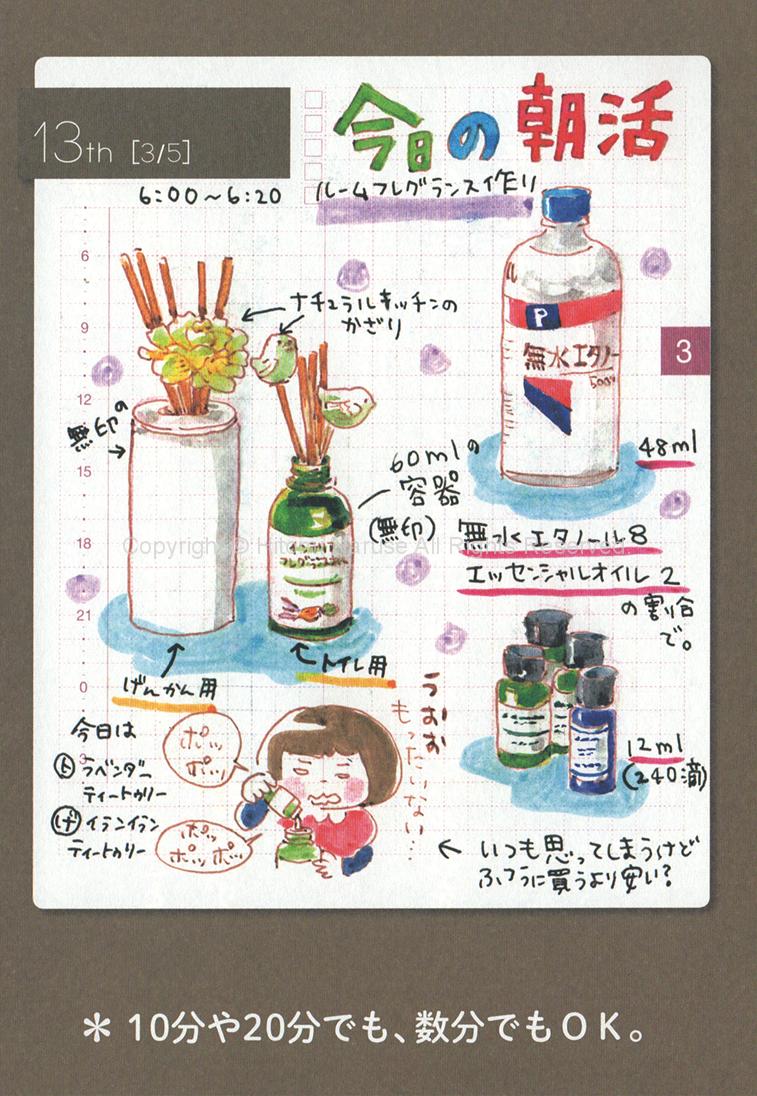 13th [3/5]
今日の朝活
6:00〜6:20
ルームフレグランス作り
6
9
12
15
18
21
0
3
3
ナチュラルキッチンの
かざり
無印の
P
無水エタノー
500ml
48ml
60mlの
容器
(無印)
フレグランスオイル
無水エタノール8
エッセンシャルオイル2
の割合
で。
Copyright © Hitomi Naruse All Rights Reserved.
げんかん用
トイレ用
今日は
ト ラベンダー
ティートゥリー
げ イランイラン
ティートゥリー
ポッ
ポッ
ポッ
ポッポッ
うおお
もったいない…
12ml
(240滴)
← いつも思ってしまうけど
ふつうに買うより安い?
* 10分や20分でも、数分でもOK。